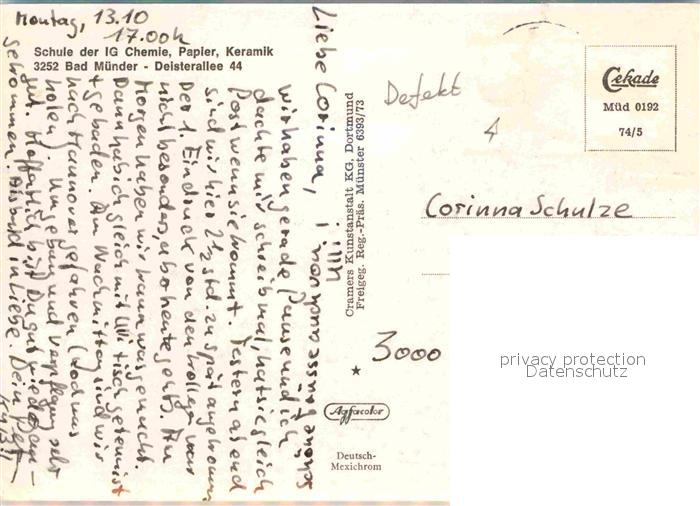 Montag, 13.10
17.00h
Schule der IG Chemie, Papier, Keramik
3252 Bad Münder - Deisterallee 44
Liebe Corinna,
wir haben gerade Pause und ich
dachte mir schreib mal, hat sie gleich
Post wenn sie kommt. Gestern abend
sind wir hier 2½ std. zu spät angekommen
Der 1. Eindruck von den Kollegen war
nicht besonders, aber heute gehts. Am
Morgen haben wir was gemacht.
Dann hab ich gleich mit Ulli Tischtennist
+ gebaden. Am Nachmittag sind wir
nach Hannover gefahren
holen. Umgebung und Verpflegung sehr
gut. Hoffentlich bist Du gut wieder
gekommen. Bis bald in Liebe. Dein
schöne Grüsse auch von
Ulli
Cramers Kunstanstalt KG. Dortmund
Freigeg. Reg.-Präs. Münster 6393/73
Defekt
4
Cekade
Müd 0192
74/5
Corinna Schulze
3000
Agfacolor
Deutsch-
Mexichrom
privacy protection
Datenschutz